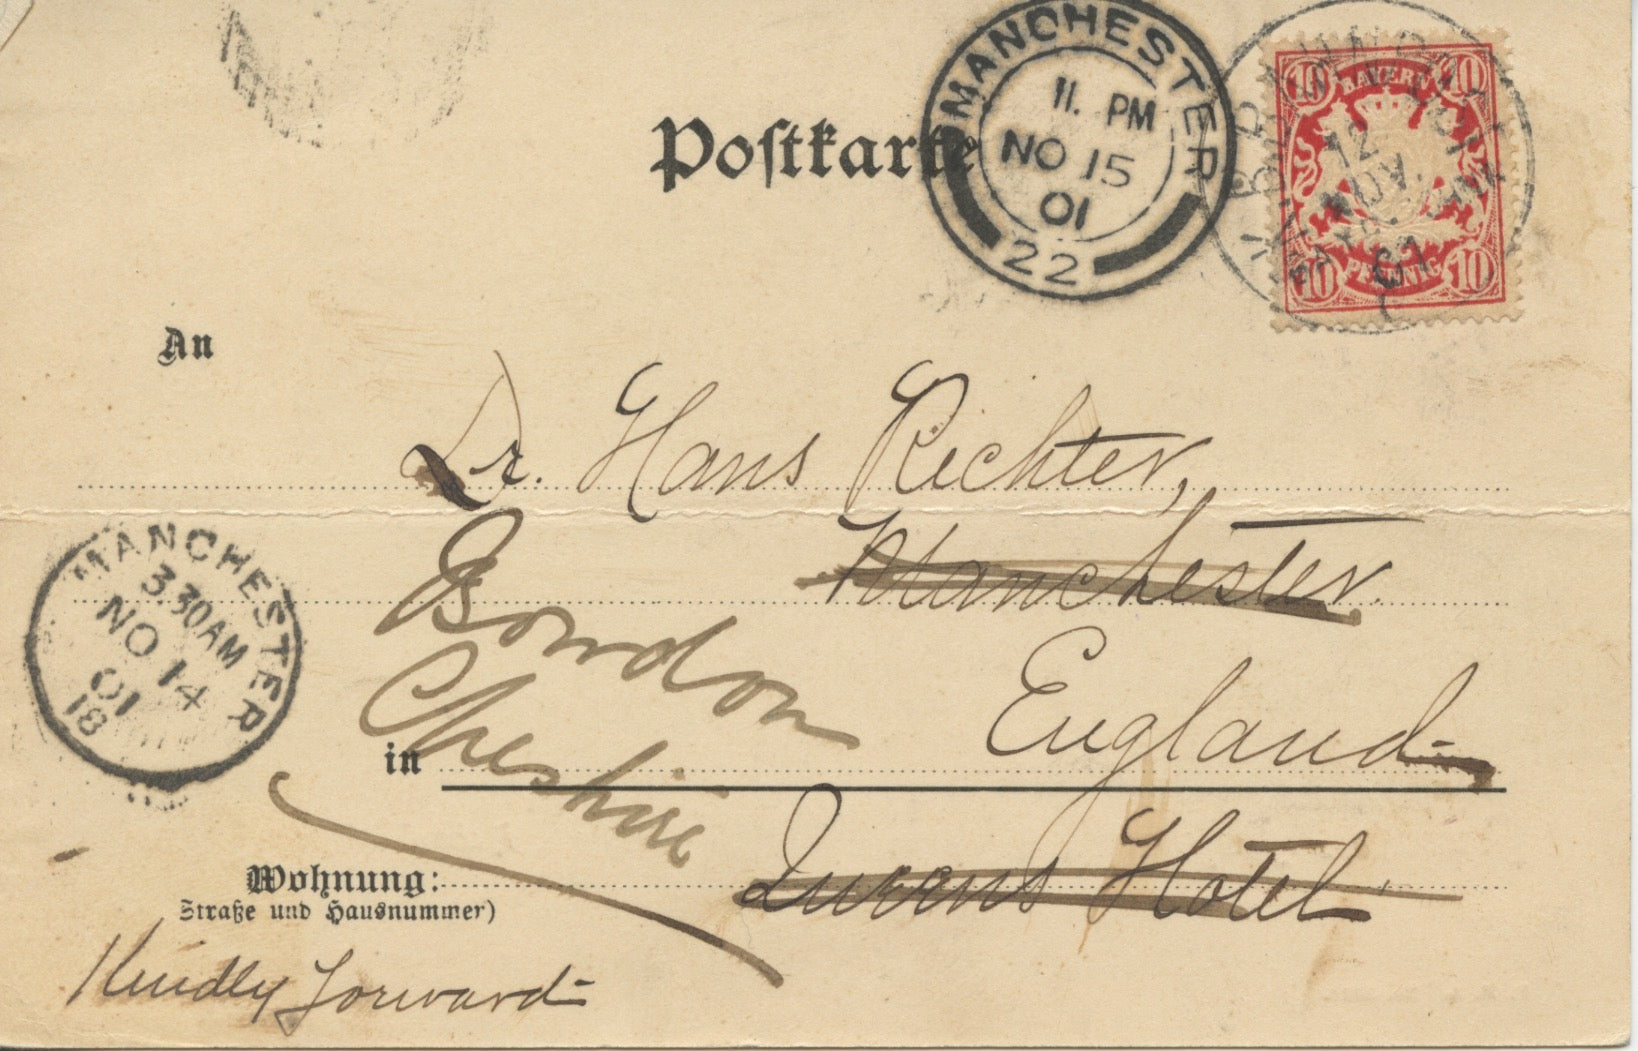 Postkarte
MANCHESTER
11. PM
NO 15
01
22
BAYERN
10 10
12
NOV.
01
PFENNIG
10 10
An
Dr. Hans Richter,
Manchester.
Bowdon
Cheshire
MANCHESTER
3.30 AM
NO 14
01
18
in England
Wohnung: Queens Hotel
Straße und Hausnummer)
Kindly forward